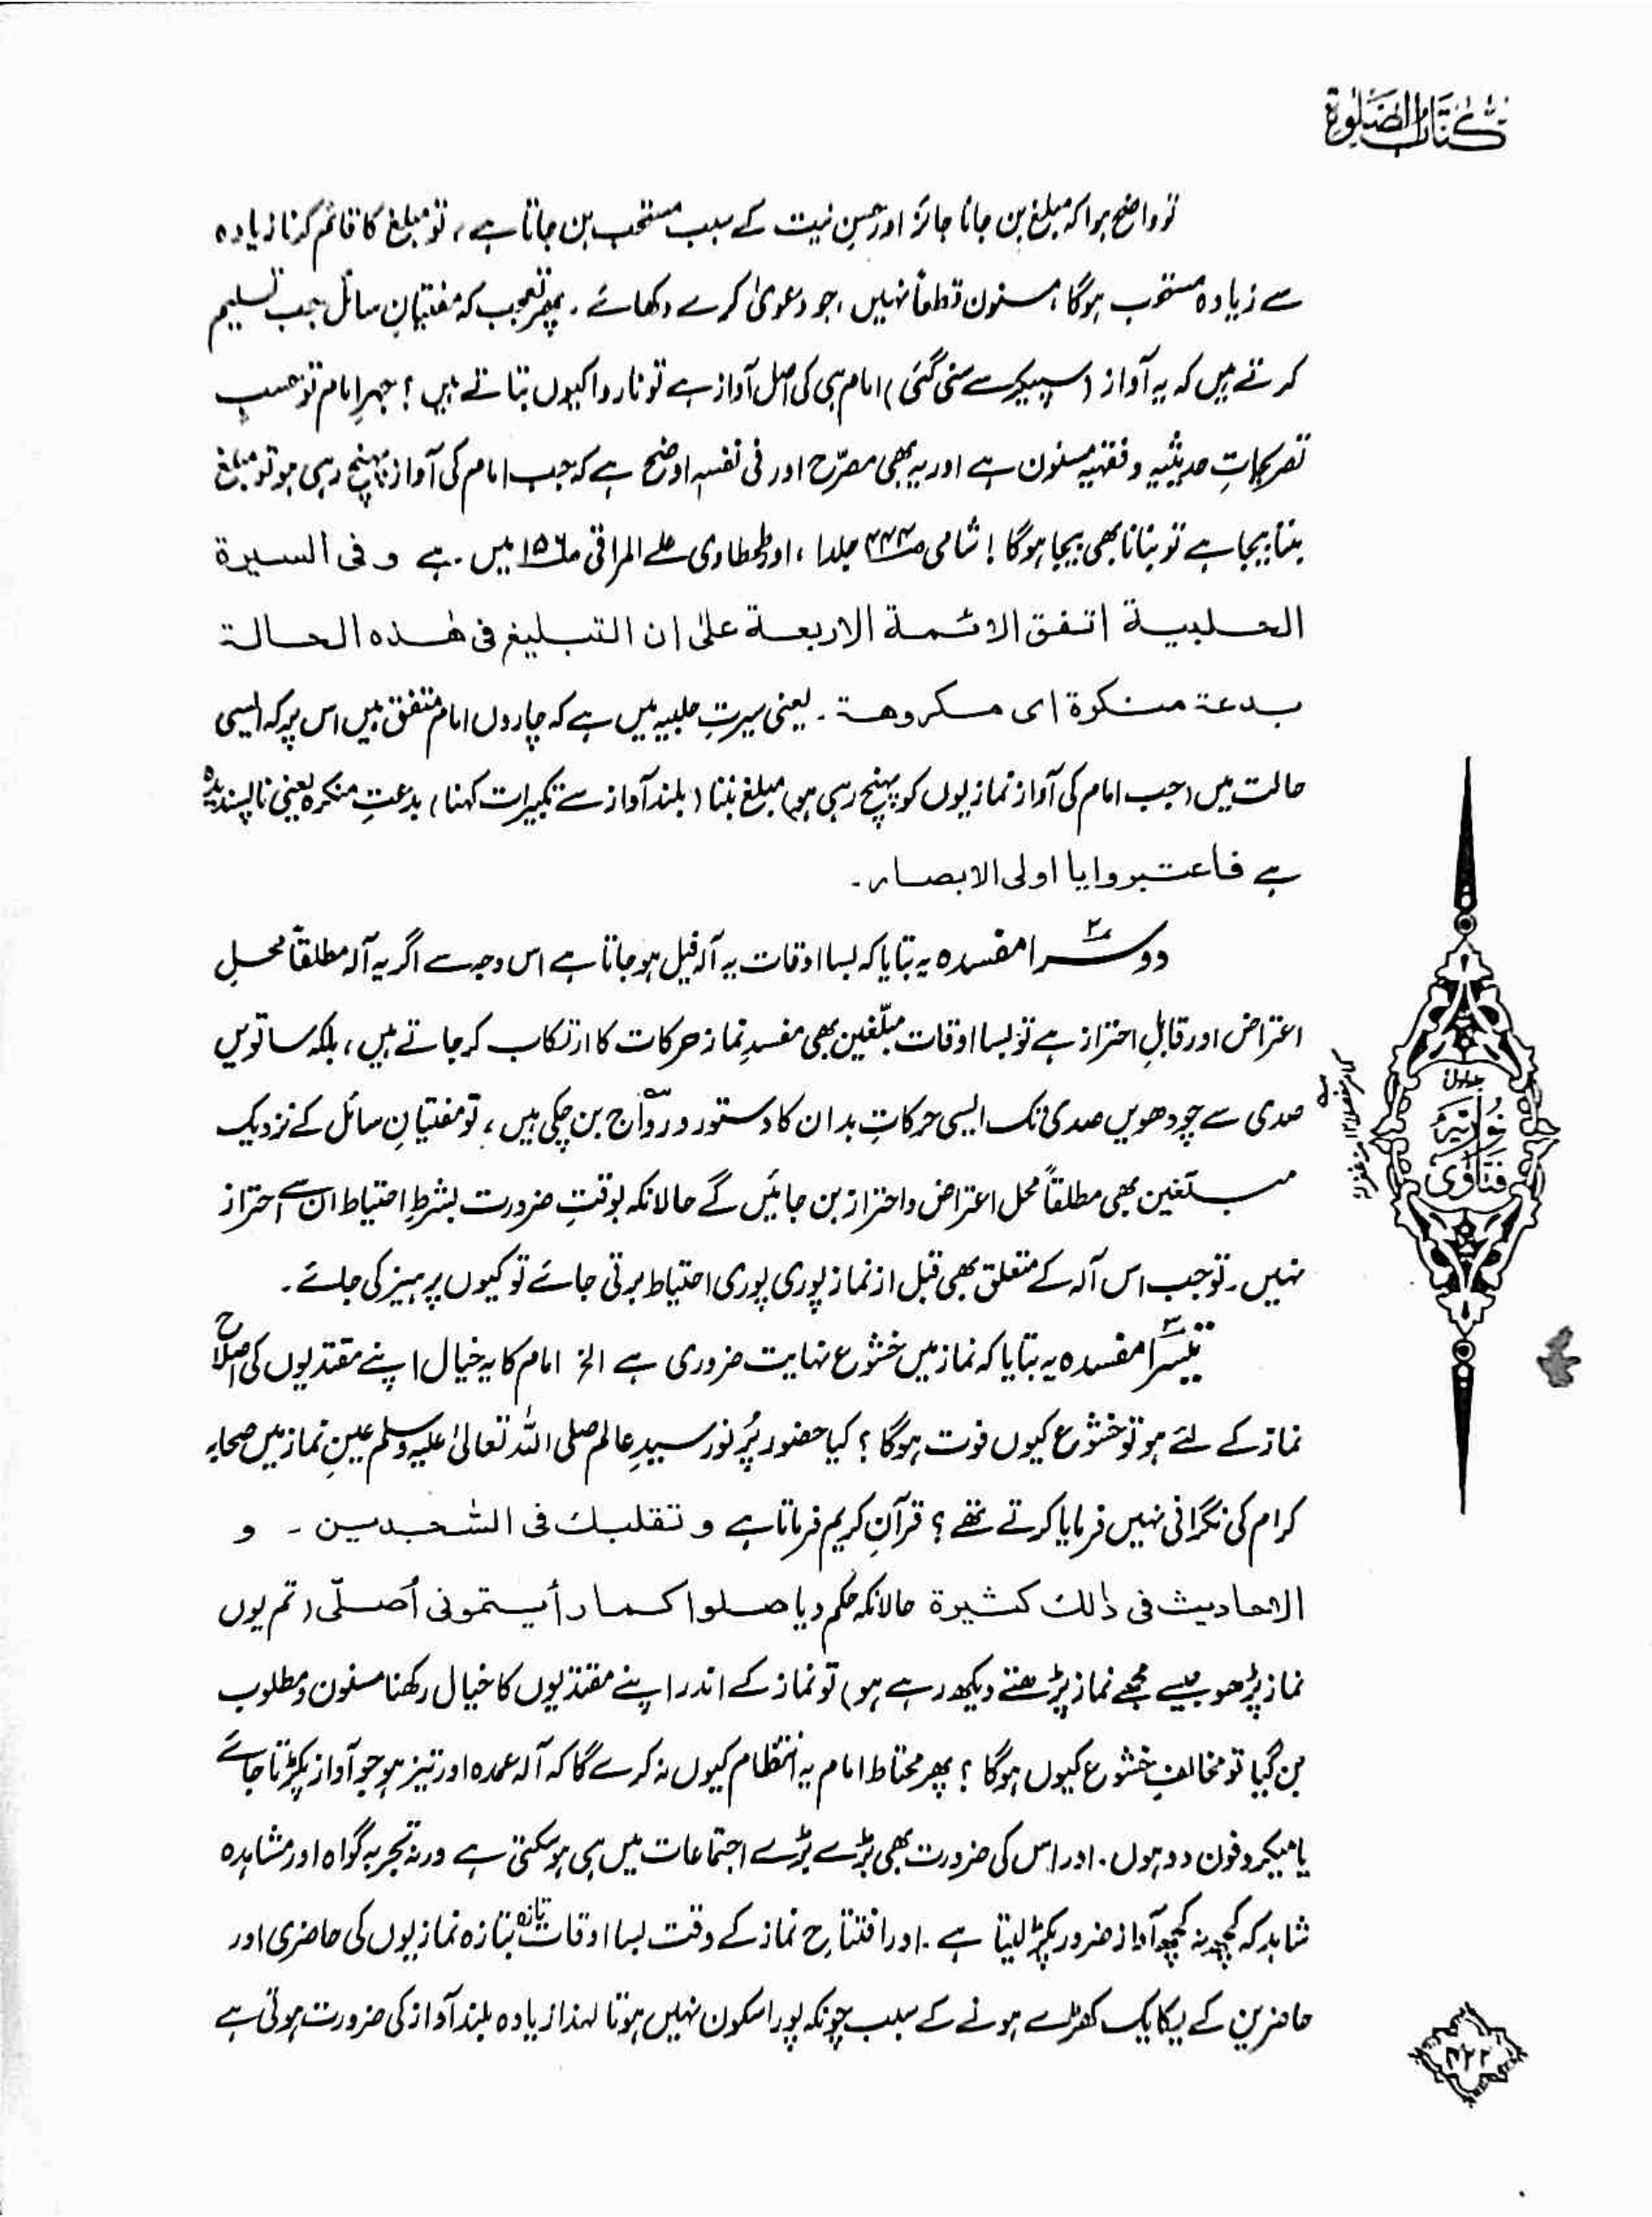 كتاب الصلوة
تو واضح ہوا کہ مبلغ بن جانا جائز اور حسنِ نیت کے سبب مستحب بن جاتا ہے، تو مبلغ کا قائم کرنا زیادہ
سے زیادہ مستحب ہوگا، مسنون قطعاً نہیں، جو دعویٰ کرے دکھائے۔ پھر تعجب کہ مفتیانِ سائل جب تسلیم
کرتے ہیں کہ یہ آواز (سپیکر سے سنی گئی) امام ہی کی اصل آواز ہے تو ناروا کیوں بتاتے ہیں؟ جہرِ امام تو حسبِ
تصریحاتِ حدیثیہ و فقہیہ مسنون ہے اور یہ بھی مصرّح اور فی نفسہٖ اوضح ہے کہ جب امام کی آواز پہنچ رہی ہو تو مبلغ
بننا بیجا ہے تو بنانا بھی بیجا ہوگا! شامی ص۴۴۴ جلد۱، اور طحطاوی علے المراقی ص۱۵۶ میں ہے و فى السيرة
الحلبية اتفق الائمة الاربعة علىٰ ان التبليغ فى هٰذه الحالة
بدعة منكرة اى مكروهة۔ یعنی سیرتِ حلبیہ میں ہے کہ چاروں امام متفق ہیں اس پر کہ ایسی
حالت میں (جب امام کی آواز نمازیوں کو پہنچ رہی ہو) مبلغ بننا (بلند آواز سے تکبیرات کہنا) بدعتِ منکرہ یعنی ناپسندیدہ
ہے فاعتبروا يا اولى الابصار۔
دوسرا۲ مفسدہ یہ بتایا کہ بسا اوقات یہ آلہ فیل ہو جاتا ہے اس وجہ سے اگر یہ آلہ مطلقاً محلِ
اعتراض اور قابلِ احتراز ہے تو بسا اوقات مبلّغین بھی مفسدِ نماز حرکات کا ارتکاب کر جاتے ہیں، بلکہ ساتویں
صدی سے چودھویں صدی تک ایسی حرکاتِ بد ان کا دستور و رواج بن چکی ہیں، تو مفتیانِ سائل کے نزدیک
مبلّغین بھی مطلقاً محل اعتراض و احتراز بن جائیں گے حالانکہ بوقتِ ضرورت بشرطِ احتیاط ان سے احتراز
نہیں۔ تو جب اس آلہ کے متعلق بھی قبل از نماز پوری پوری احتیاط برتی جائے تو کیوں پرہیز کی جائے۔
تیسرا۳ مفسدہ یہ بتایا کہ نماز میں خشوع نہایت ضروری ہے الخ امام کا یہ خیال اپنے مقتدیوں کی اصلاح
نماز کے لئے ہو تو خشوع کیوں فوت ہوگا؟ کیا حضور پُر نور سیدِ عالم صلی اللہ تعالیٰ علیہ وسلم عینِ نماز میں صحابہ
کرام کی نگرانی نہیں فرمایا کرتے تھے؟ قرآنِ کریم فرماتا ہے و تقلبك فى السّٰجدين۔ و
الاحاديث فى ذٰلك كثيرة حالانکہ حکم دیا صلوا كما رأيتمونى أصلّى (تم یوں
نماز پڑھو جیسے مجھے نماز پڑھتے دیکھ رہے ہو) تو نماز کے اندر اپنے مقتدیوں کا خیال رکھنا مسنون و مطلوب
بن گیا تو مخالفِ خشوع کیوں ہوگا؟ پھر محتاط امام یہ انتظام کیوں نہ کرے گا کہ آلہ عمدہ اور تیز ہو جو آواز پکڑتا جائے
یا میکروفون دو ہوں۔ اور اس کی ضرورت بھی بڑے بڑے اجتماعات میں ہی ہو سکتی ہے ورنہ تجربہ گواہ اور مشاہدہ
شاہد کہ کچھ نہ کچھ آواز ضرور پکڑ لیتا ہے۔ اور افتتاحِ نماز کے وقت بسا اوقات تازہ بتازہ نمازیوں کی حاضری اور
حاضرین کے یکایک کھڑے ہونے کے سبب چونکہ پورا سکون نہیں ہوتا لہذا زیادہ بلند آواز کی ضرورت ہوتی ہے
جلد اول
فتاوىٰ نوريه